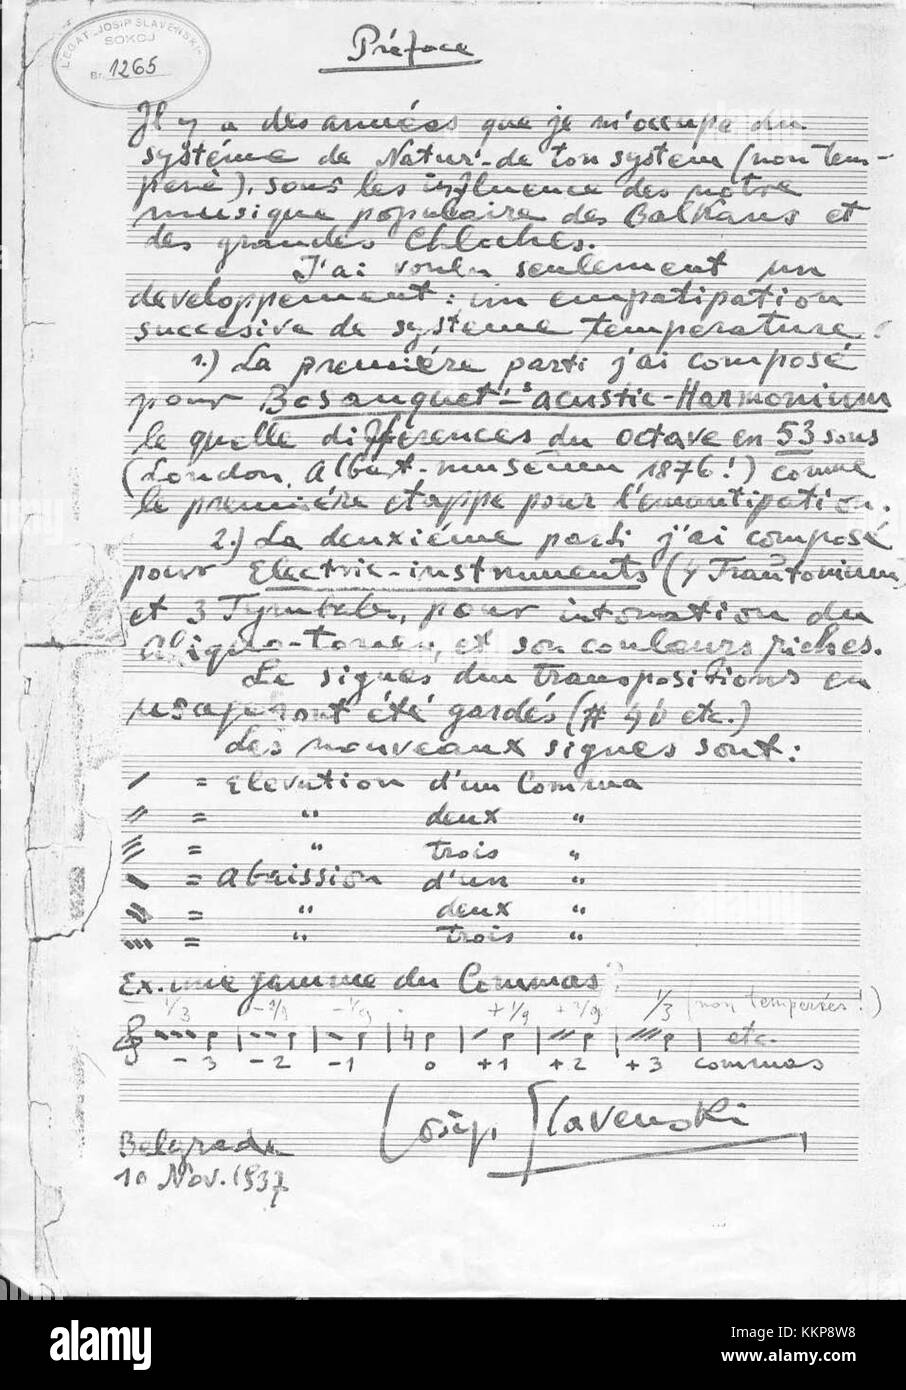 LEGAT "JOSIP SLAVENSKI"
SOKOJ
Br. 1265
Préface
Il y a des années que je m'occupe du
système de Natur-de ton system (non tem-
peré), sous les influence des notre
musique populaire des Balkans et
des grandes Cloches.
J'ai voulu seulement un
developpement: un
succesive de systeme temperature
1.) La première parti j'ai composé
pour Bosanquet's acustic-Harmonium
le quelle differences du octave en 53 sons
(London, Albert-muséum 1876!) comme
le première etappe pour l'
2.) La deuxiéme parti j'ai composé
pour Electric-instruments (4 Trautonium
et 3 , pour intonation du
, et son couleurs riches.
Le signes du transpositions en
usage ont été gardés (# ♮ b etc.)
des nouveaux signes sont:
/ = Elevation d'un Comma
// = " deux "
/// = " trois "
\ = abaission d'un "
\\ = " deux "
\\\ = " trois "
Ex. une gamme du Commas
1/3 -2/9 -1/9 . +1/9 +2/9 1/3 (non temperées!)
etc.
-3 -2 -1 0 +1 +2 +3 commas
Josip Slavenski
Belgrade
10 Nov. 1937
alamy
KKP8W8
www.alamy.com